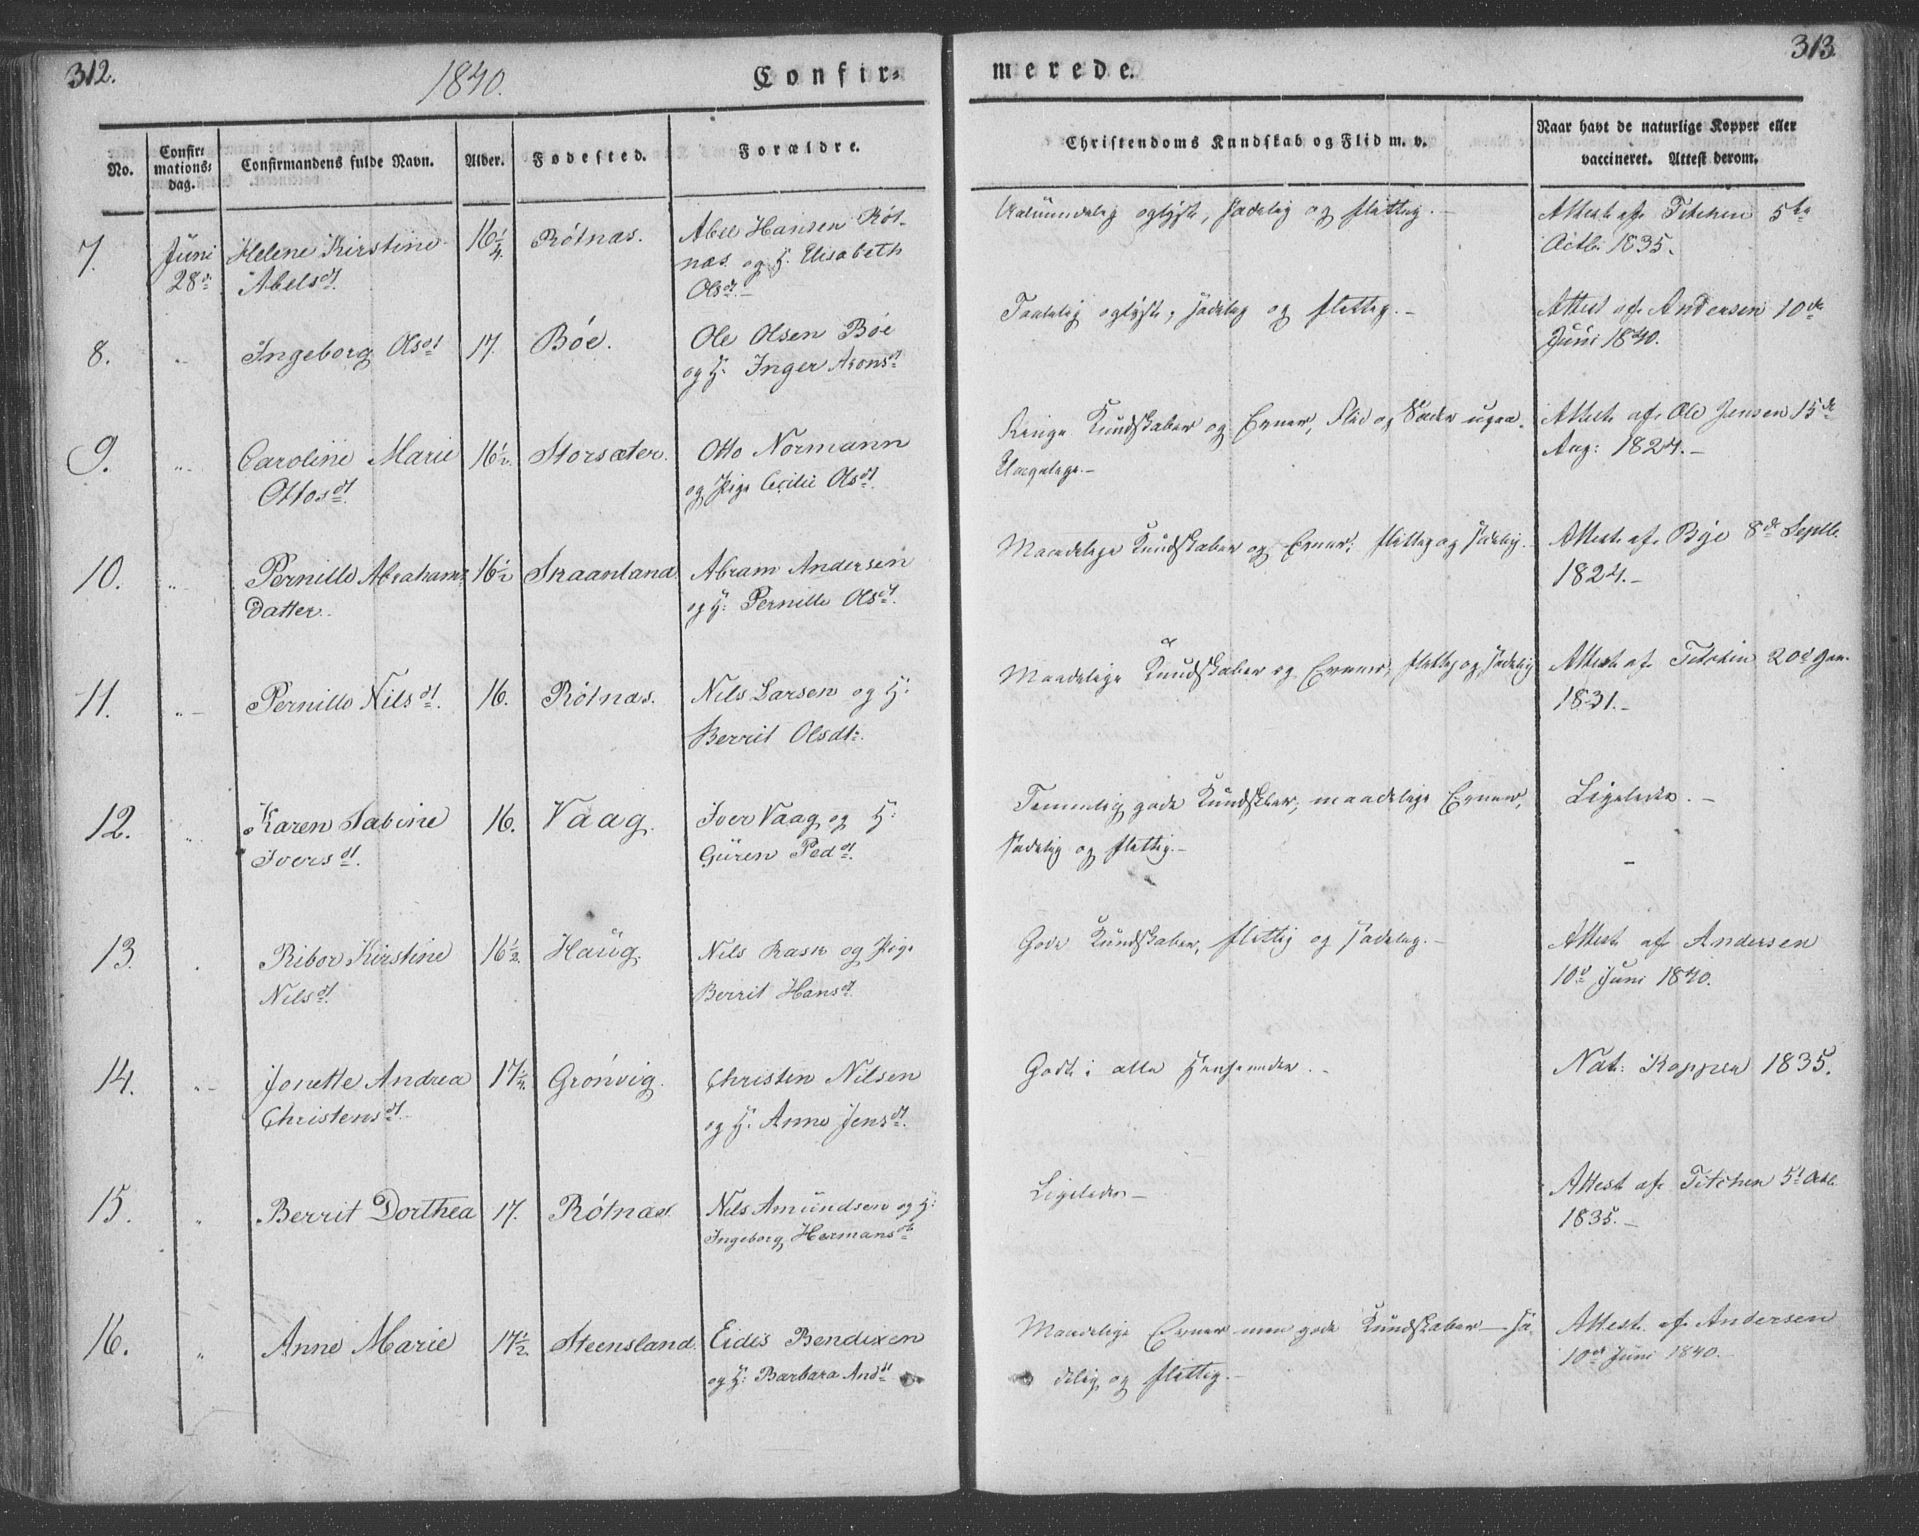 312.
1840.
Confir-
merede.
313
No.
Confir-
mations-
dag.
Confirmandens fulde Navn.
Alder.
Fødested.
Forældre.
Christendoms Kundskab og Flid m. v.
Naar havt de naturlige Kopper eller
vaccineret. Attest derom.
7.
Juni
28de
Helene Kirstine
Abelsdt.
16 1/4
Rötnæs.
Abel Hansen Röt-
næs og H. Elisabeth
Olsdt.
oplyst, sædelig og flittig.
Attest af Titchen 5te
Octb. 1835.
8.
"
Ingeborg Olsdt
17.
Böe.
Ole Olsen Böe
og H: Inger Aronsdt
Taalelig oplyst, sædelig og flittig.
Attest af Andersen 10de
Juni 1840.
9.
"
Caroline Marie
Ottosdt.
16 1/2.
Storsæter.
Otto Normann
og Pige Cecilie Olsdt.
Ringe Kundskaber og Evner, Flid og Sæder
Attest af Ole Jensen 15de
Aug: 1824.
10.
"
Pernille Abrahams
Datter.
16 1/2
Skaanland.
Abram Andersen
og H: Pernille Olsdt.
Maadelige Kundskaber og Evner; flittig og sædelig.
Attest af Bye 8de Septb.
1824.
11.
"
Pernille Nilsdt.
16.
Rötnæs.
Nils Larsen og H:
Berrit Olsdt.
Maadelige Kundskaber og Evner, flittig og sædelig
Attest af Titchen 20de Jan.
1831.
12.
"
Karen Sabine
Iversdt.
16.
Vaag.
Iver Vaag og H:
Gúren Peddt.
Temmelig gode Kundskber, maadelige Evner,
sædelig og flittig.
Ligeledes.
13.
Ribor Kirstine
Nilsdt.
16 1/2.
Haug.
Nils Rask og Pige
Berrit Hansdt.
Gode Kundskaber, flittig og sædelig.
Attest af Andersen
10de Juni 1840.
14.
"
Jonette Andrea
Christensdt.
17 1/4.
Grönvig.
Christen Nilsen
og H. Anne Jensdt.
Godt i alle Henseender.
Nat: Kopper 1835.
15.
"
Berrit Dorthea
17.
Rötnæs.
Nils Amundsen og H:
Ingeborg Hermansdt
Ligeledes
Attest af Titchen 5t Octb.
1835.
16.
"
Anne Marie
17 1/2.
Steensland.
Eidis Bendixen
og H: Barbara Anddt
Maadelige Evner men gode Kundskaber — sæ-
delig og flittig.
Attest af Andersen
10de Juni 1840.